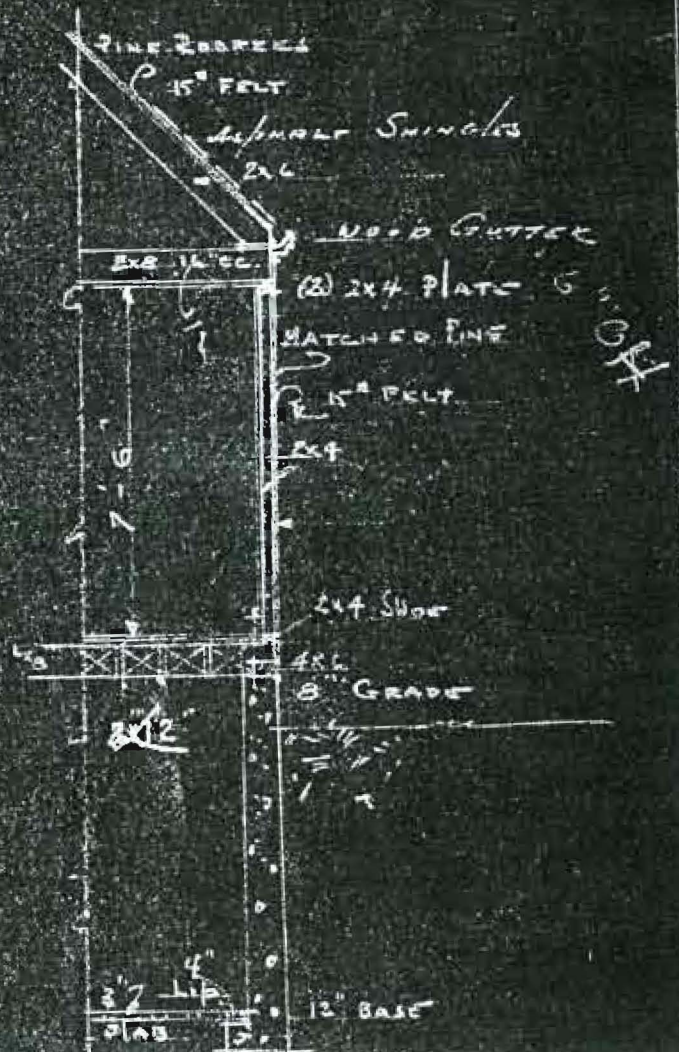 PINE ROOFERS
15# FELT
ASPHALT SHINGLES
2x6
WOOD GUTTER
2x8 16" CC.
(2) 2x4 PLATE
MATCHED PINE
15# FELT
7'-6"
2x4
2x4 SHOE
4x6
8" GRADE
2x12"
4"
LIP
3"
SLAB
12" BASE